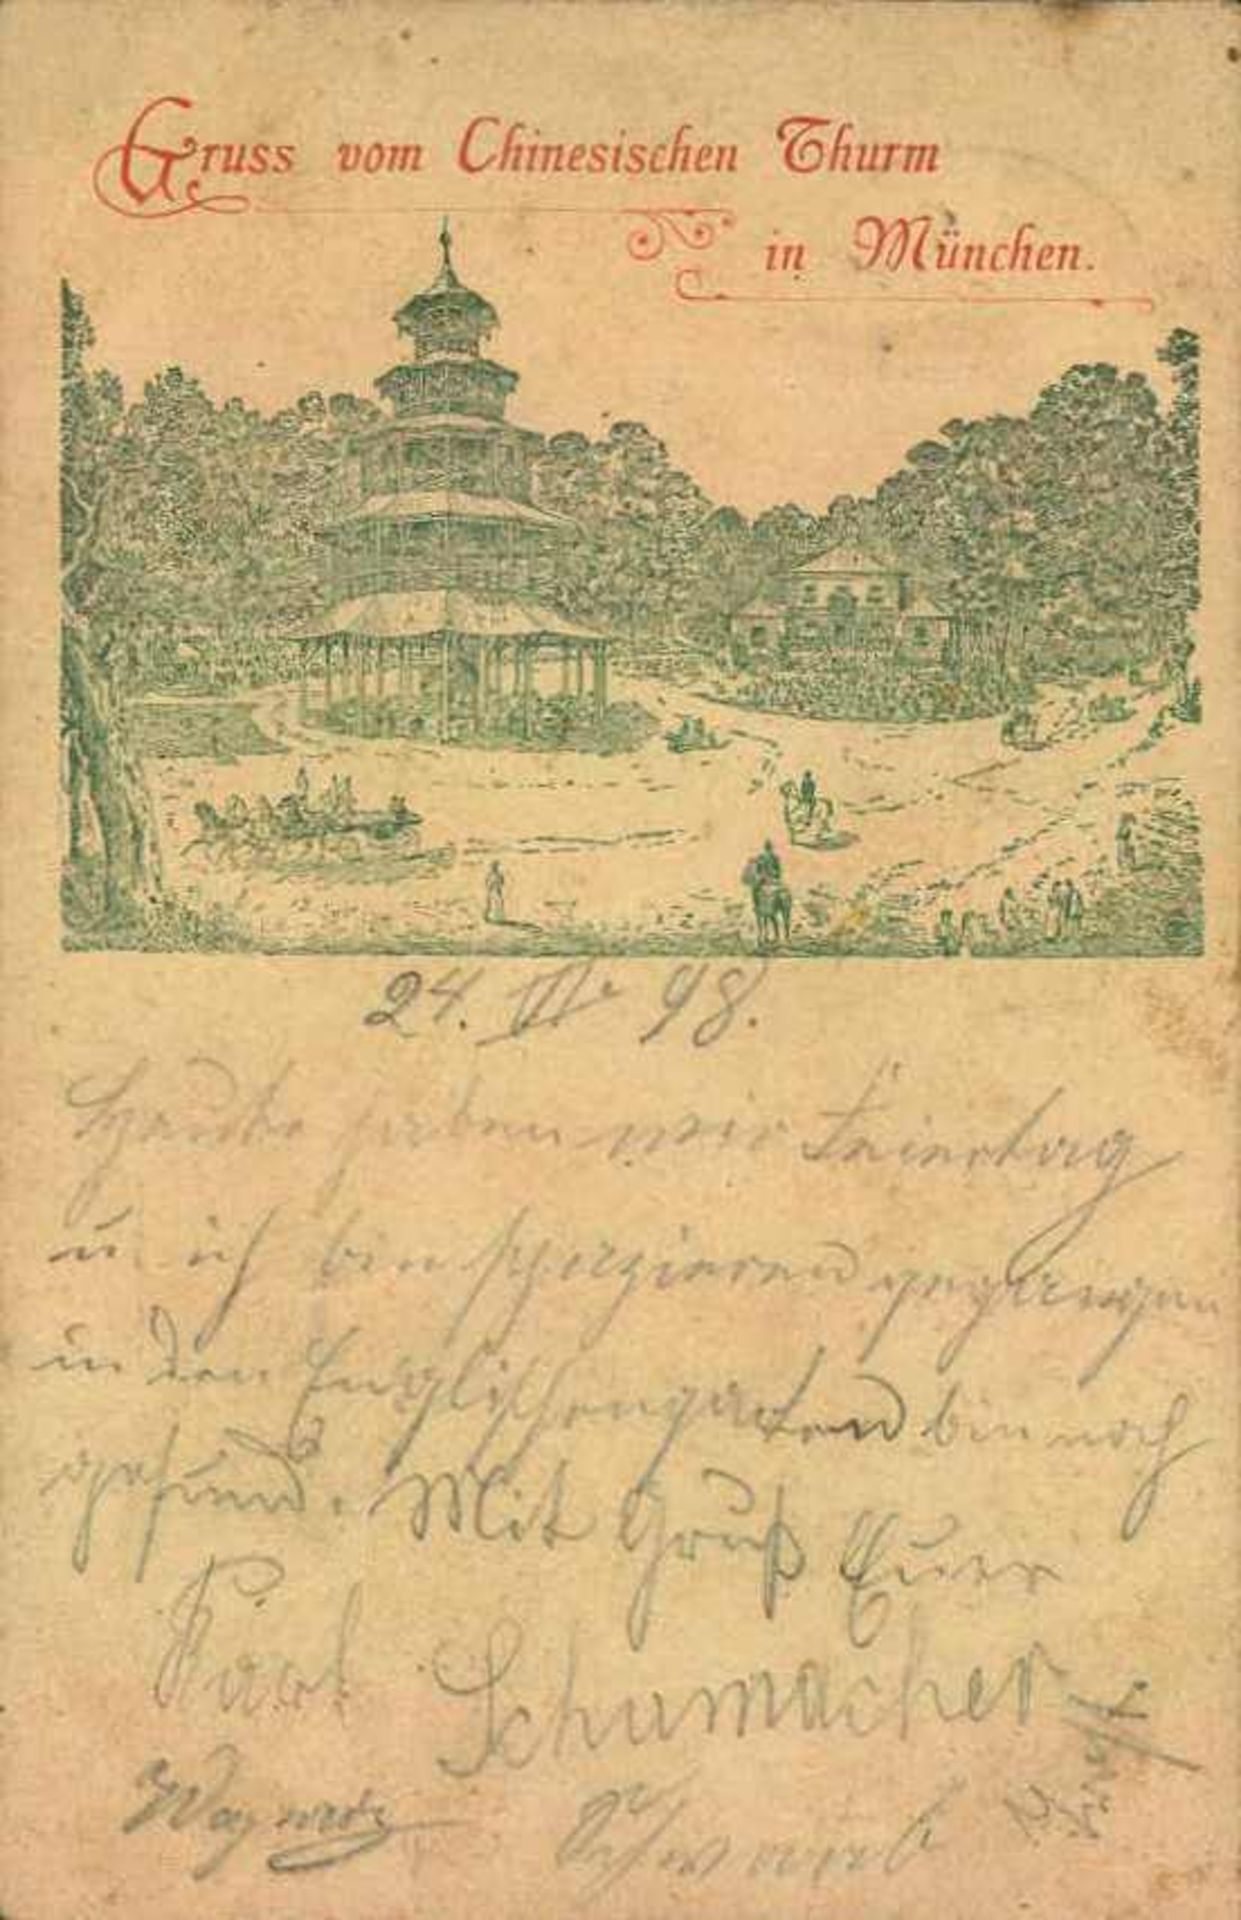 Gruss vom Chinesischen Thurm
in München.
24. VI. 98.
Heute haben wir Feiertag
u. ich bin spazieren gegangen
in den Englischengarten bin noch
gesund. Mit Gruß Euer
Karl Schumacher